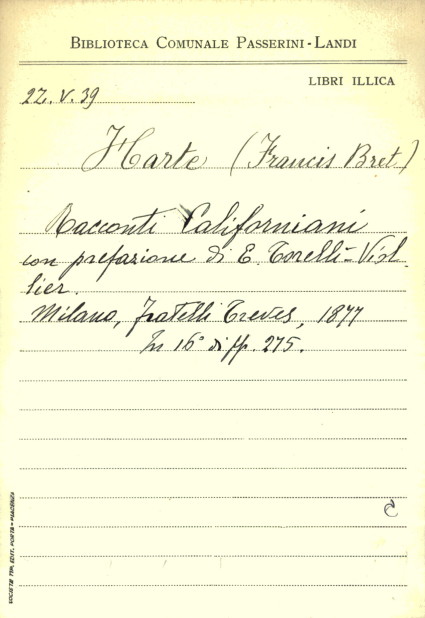 BIBLIOTECA COMUNALE PASSERINI-LANDI
LIBRI ILLICA
2Z.V.39
Harte (Francis Bret)
Racconti Californiani
con prefazione di E. Torelli-Viol-
lier.
Milano, Fratelli Treves, 1877
In 16° di pp. 275.
C
SOCIETÀ TIP. EDIT. PORTA - PIACENZA